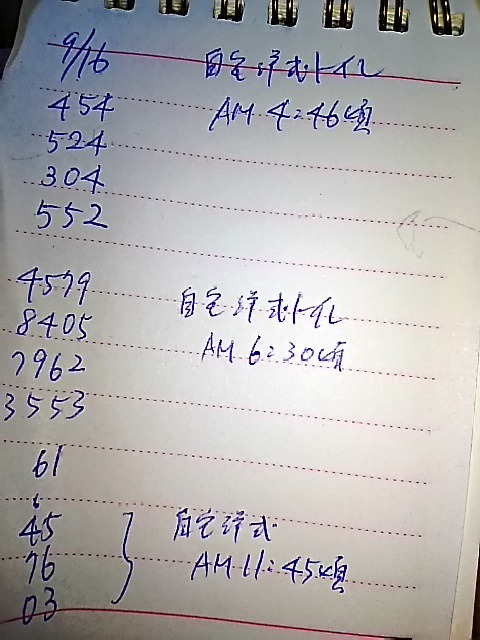 9/16 自宅洋式トイレ
454 AM 4:46頃
524
304
552
4579 自宅洋式トイレ
8405 AM 6:30頃
7962
3553
61
6
45 自宅洋式
76 AM 11:45頃
03